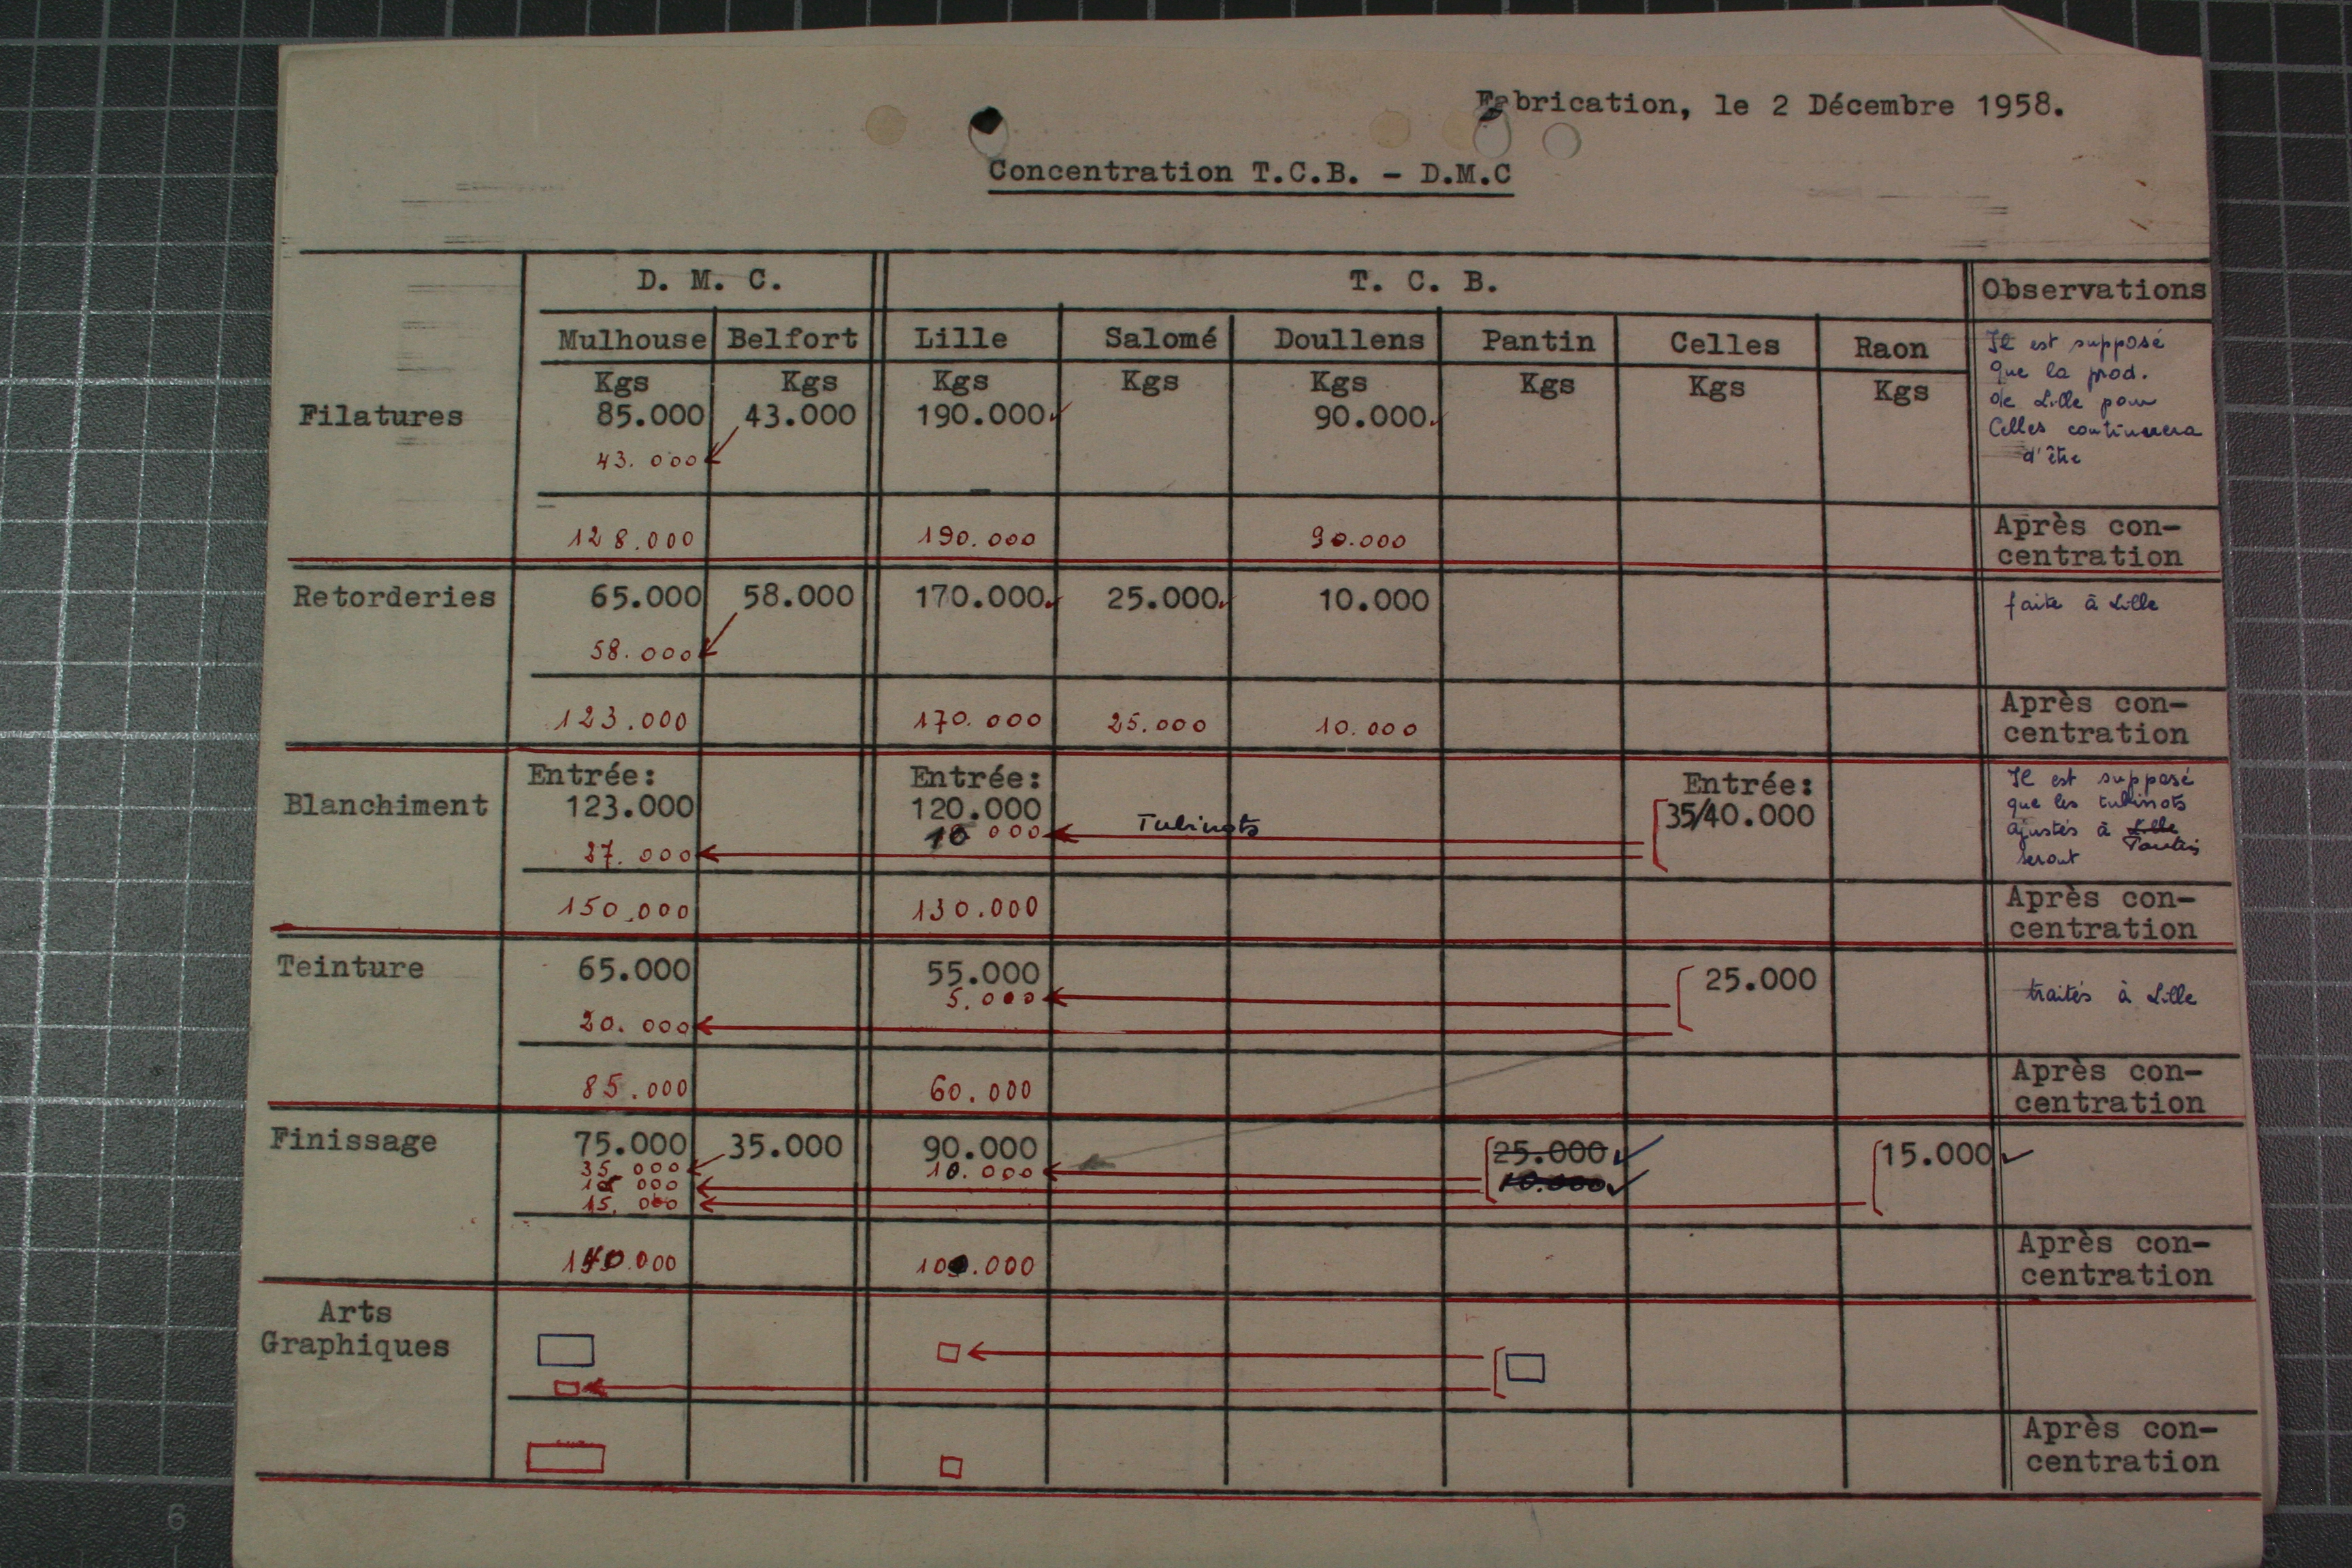 Fabrication, le 2 Décembre 1958.
Concentration T.C.B. - D.M.C
D. M. C. T. C. B. Observations
Mulhouse Belfort Lille Salomé Doullens Pantin Celles Raon
Kgs Kgs Kgs Kgs Kgs Kgs Kgs Kgs
Filatures 85.000 43.000 190.000 90.000
43.000
Il est supposé
que la prod.
de Lille pour
Celles continuera
d'être
128.000 190.000 90.000 Après con-
centration
Retorderies 65.000 58.000 170.000 25.000 10.000 faite à Lille
58.000
123.000 170.000 25.000 10.000 Après con-
centration
Entrée: Entrée: Entrée:
Blanchiment 123.000 120.000 35/40.000
10 000 Tubinots
27.000
Il est supposé
que les tubinots
ajustés à Lille
seront
150.000 130.000 Après con-
centration
Teinture 65.000 55.000 25.000 traités à Lille
5.000
20.000
85.000 60.000 Après con-
centration
Finissage 75.000 35.000 90.000 25.000 15.000
35.000 10.000 10.000
000
15.000
140.000 100.000 Après con-
centration
Arts
Graphiques
Après con-
centration
6